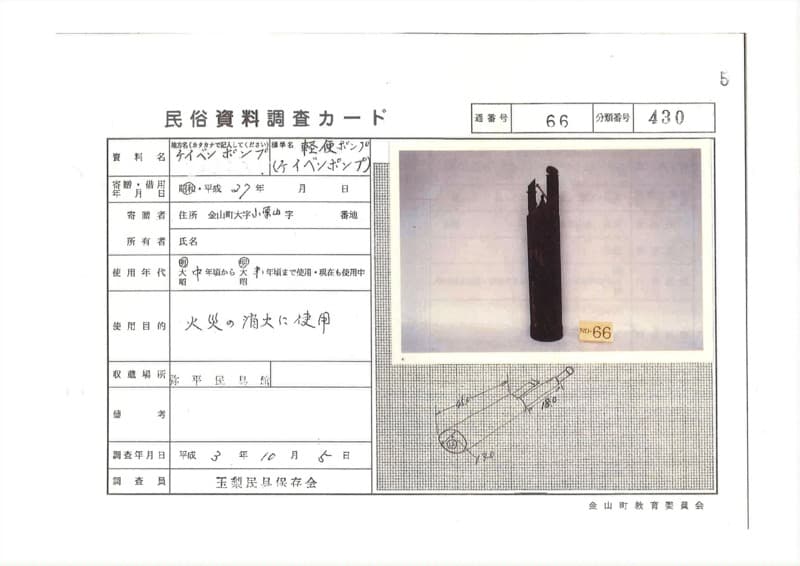 5
民俗資料調査カード
通番号 66 分類番号 430
資料名 地方名(カタカナで記入してください) ケイベンポンプ 標準名 軽便ポンプ (ケイベンポンプ)
寄贈・借用年月日 昭和・平成 27年 月 日
寄贈者 住所 金山町大字小栗山字 番地
所有者 氏名
使用年代 明大昭 中年頃から 明大昭 年頃まで使用・現在も使用中
使用目的 火災の消火に使用
収蔵場所 弥平民具館
備考
調査年月日 平成 3年 10月 5日
調査員 玉梨民具保存会
NO-66
18.0
金山町教育委員会